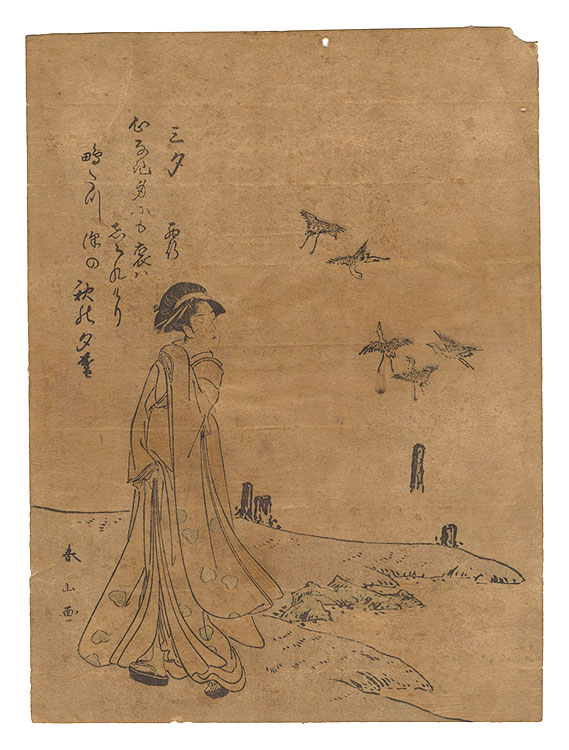 三夕
西行
心なき身にも哀ハ
しられけり
鴫たつ沢の秋の夕暮
春山画